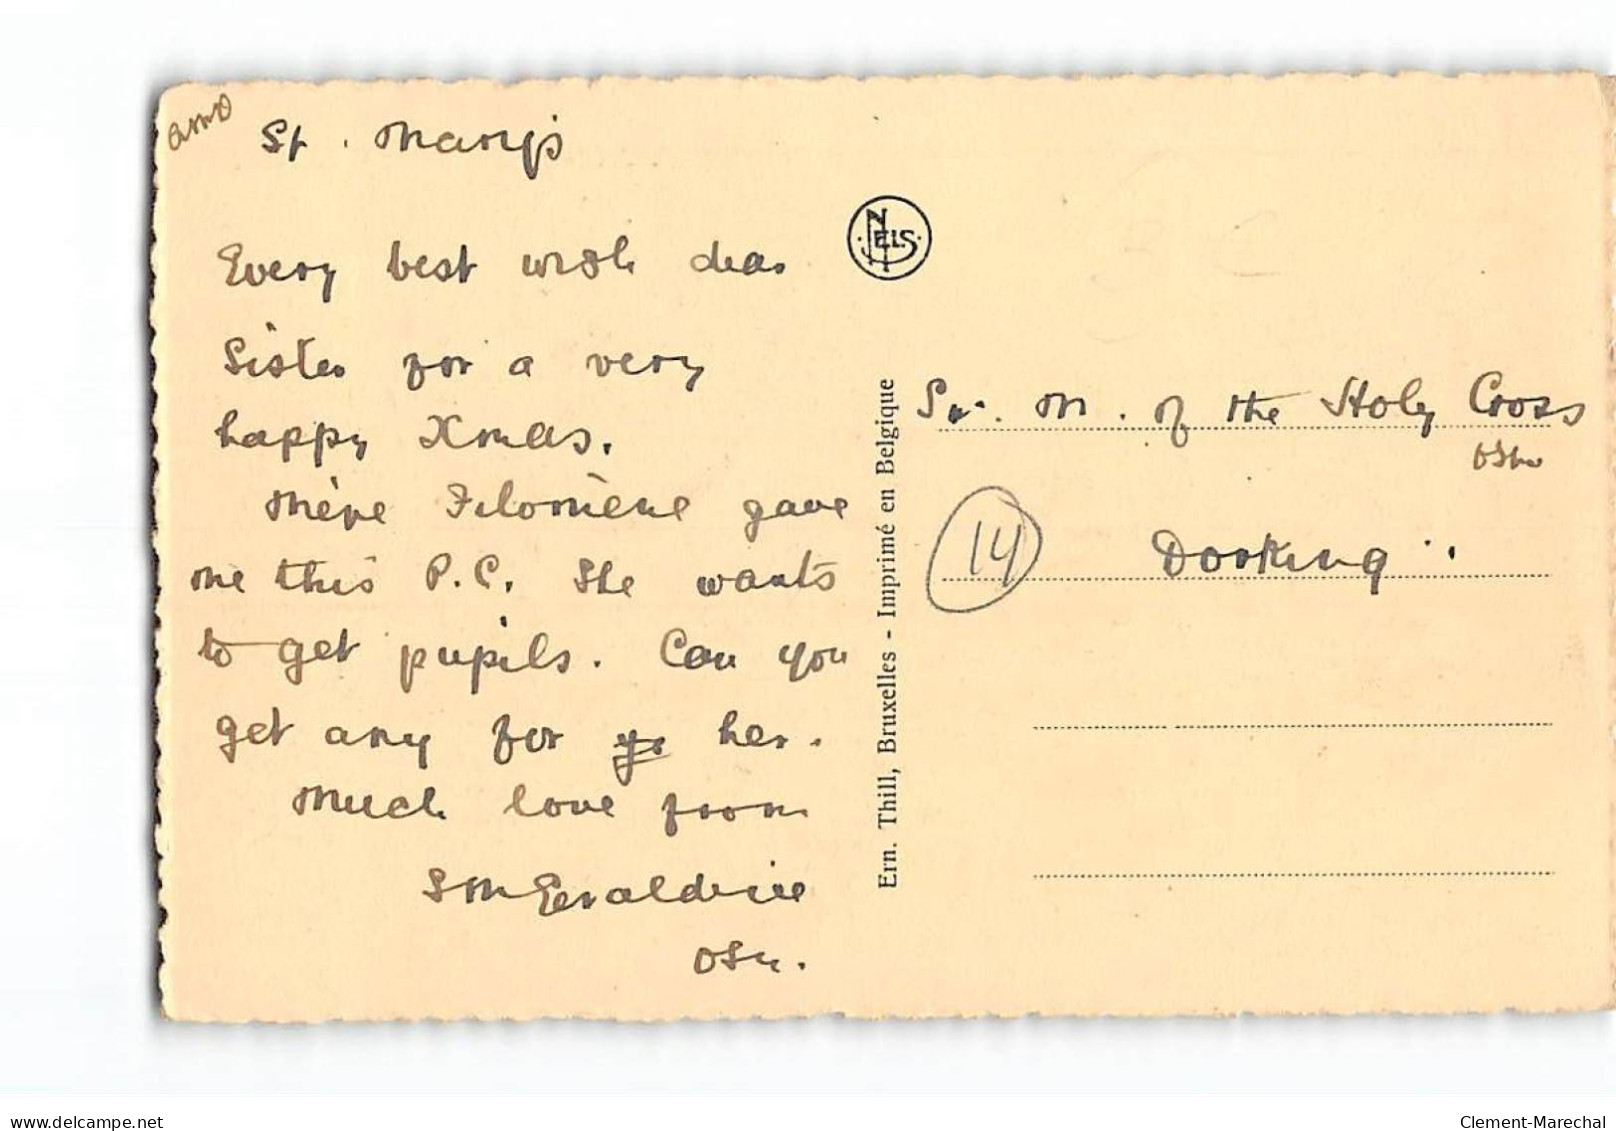 St. Mary's
Every best wish dear
Sister for a very
happy Xmas.
Mère Filomène gave
me this P.C. She wants
to get pupils. Can you
get any for her.
Much love from
S M Geraldine
OSu.
NELS
Ern. Thill, Bruxelles - Imprimé en Belgique
Sr. M. of the Holy Cross
OSU
14
Dorking
Clement-Marechal
www.delcampe.net